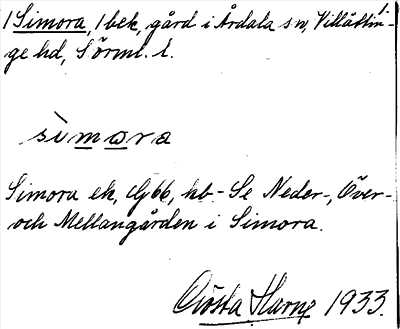 1 Simora, 1 bek, gård i Årdala sn, Villåttin-
ge hd, Sörml. l.
sìmora
Simora ek, Gj66, kb - Se Neder-, Över-
och Mellangården i Simora.
Gösta Harne 1933.